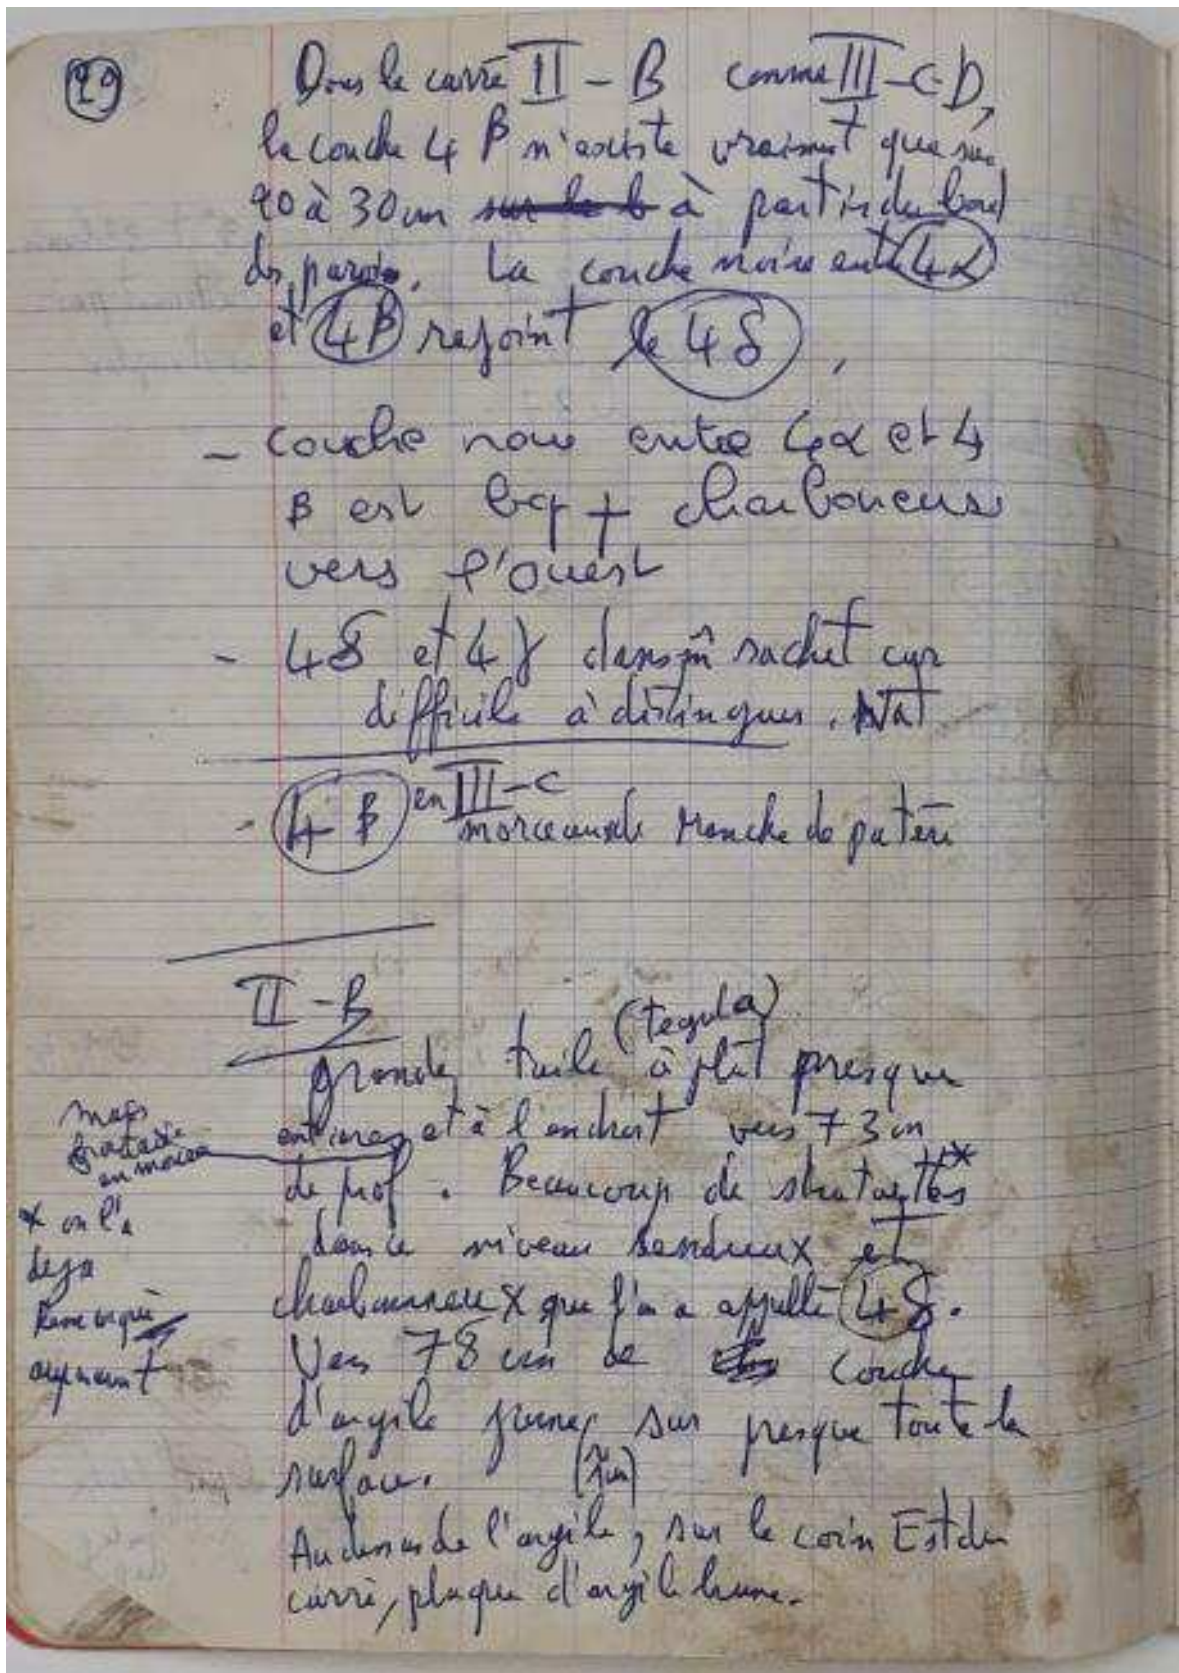 29
Dans le carré II - B comme III-C-D,
la couche 4 β n'existe vraiment que sur
20 à 30 cm à partir du bord
des parois. La couche noire entre 4α
et 4β rejoint le 4δ,
- couche noire entre 4α et 4
β est bcp + charboneuse
vers l'ouest
- 4δ et 4γ dans m̂ sachet car
difficile à distinguer. Nat
- 4 β en III-C
morceau de manche de patère
II - B
(tegula)
grande tuile à plat presque
entières et à l'endroit vers 73 cm
de prof. Beaucoup de
dans le niveau cendreux et
charbonneux que l'on a appellé 4δ.
Vers 78 cm couche
d'argile jaune, sur presque toute la
surface.
Au dessus de l'argile, sur le coin Est du
carré, plaque d'argile brune.
mais
en morceau
* on l'a
deja
Remarqué